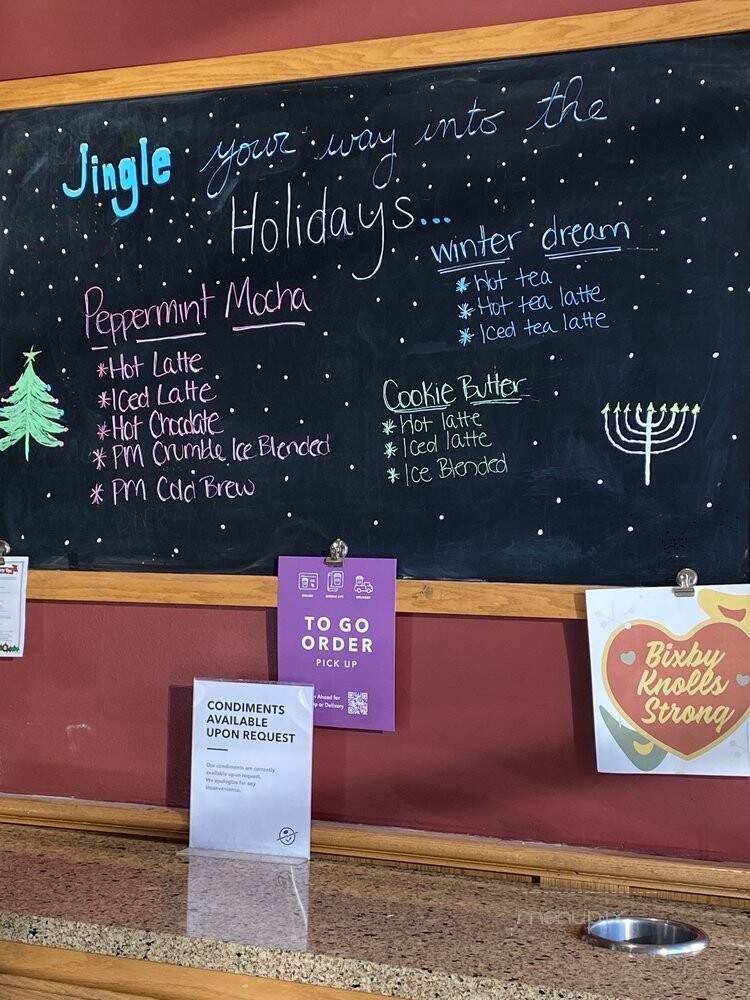 Jingle your way into the
Holidays...
Peppermint Mocha
*Hot Latte
*Iced Latte
*Hot Chocolate
*PM Crumble Ice Blended
*PM Cold Brew
winter dream
*Hot tea
*Hot tea latte
*Iced tea latte
Cookie Butter
*Hot latte
*Iced latte
*Ice Blended
TO GO
ORDER
PICK UP
Ahead for
or Delivery
CONDIMENTS
AVAILABLE
UPON REQUEST
Our condiments are currently
available upon request.
We apologize for any
inconvenience.
Bixby
Knolls
Strong